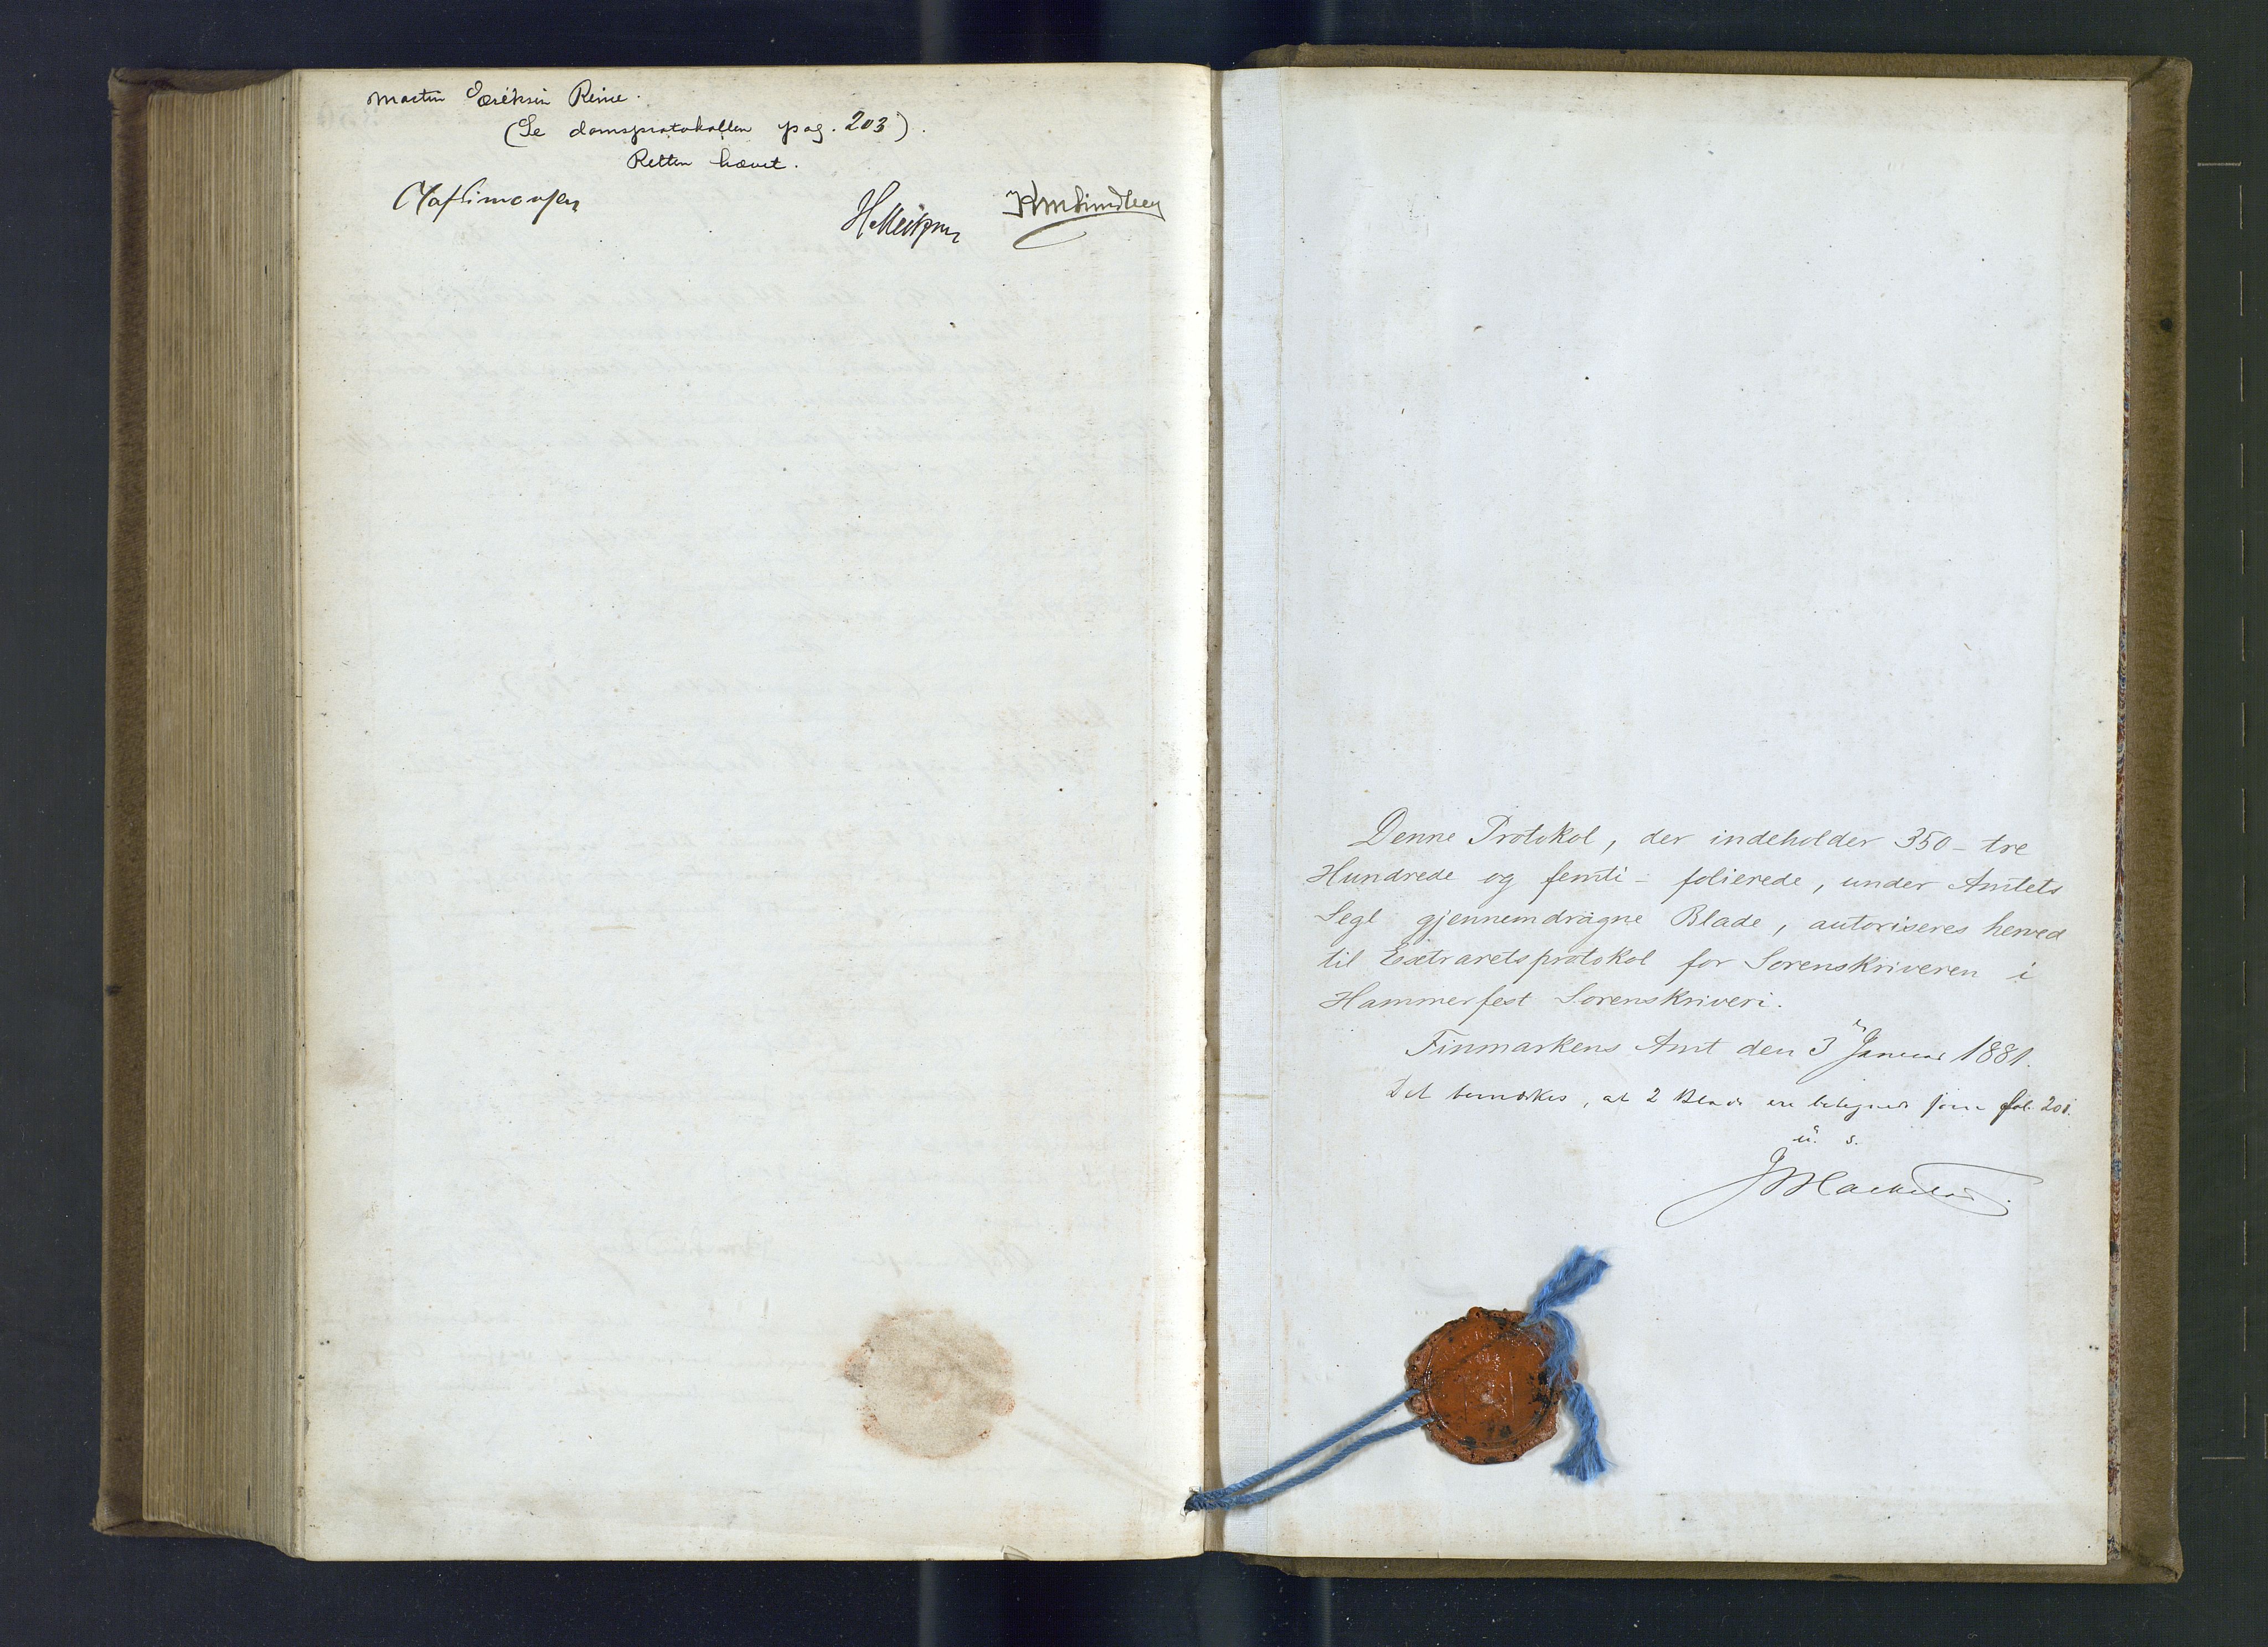 Martin Reine.
(Se domsprotokollen pag. 203).
Retten hævet.
Denne Protokol, der indeholder 350 – tre
Hundrede og femti – folierede, under Amtets
Segl gjennemdragne Blade, autoriseres herved
til Extraretsprotokol for Sorenskriveren i
Hammerfest Sorenskriveri.
Finmarkens Amt den 3 Januar 1881.
Det bemærkes, at 2 Blade ere betegnede som fol. 201.
u. s.